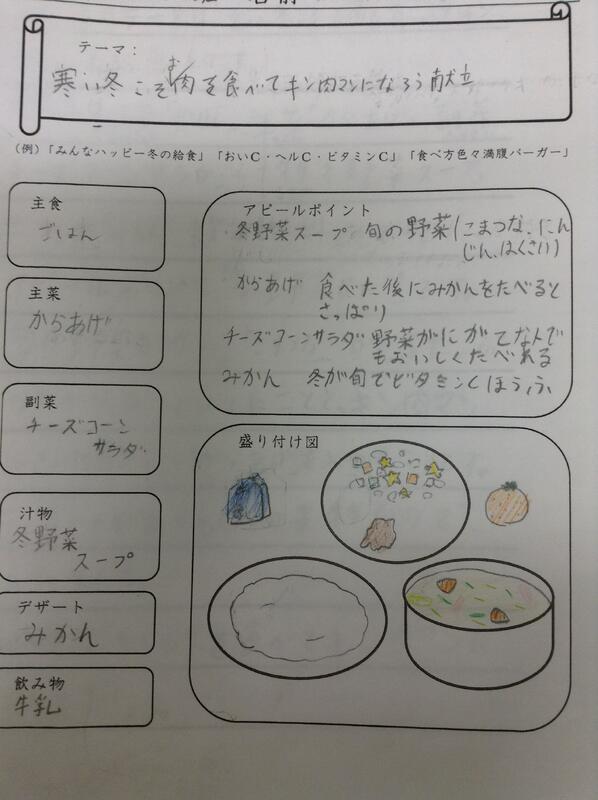 テーマ：
寒い冬こそお肉を食べてキン肉マンになろう献立
（例）「みんなハッピー冬の給食」「おいC・ヘルC・ビタミンC」「食べ方色々満腹バーガー」
主食
ごはん
主菜
からあげ
副菜
チーズコーン
サラダ
汁物
冬野菜
スープ
デザート
みかん
飲み物
牛乳
アピールポイント
冬野菜スープ 旬の野菜(こまつな、にん
じん、はくさい)
からあげ 食べた後にみかんをたべると
さっぱり
チーズコーンサラダ 野菜がにがてな人で
もおいしくたべれる
みかん 冬が旬でビタミンCほうふ
盛り付け図